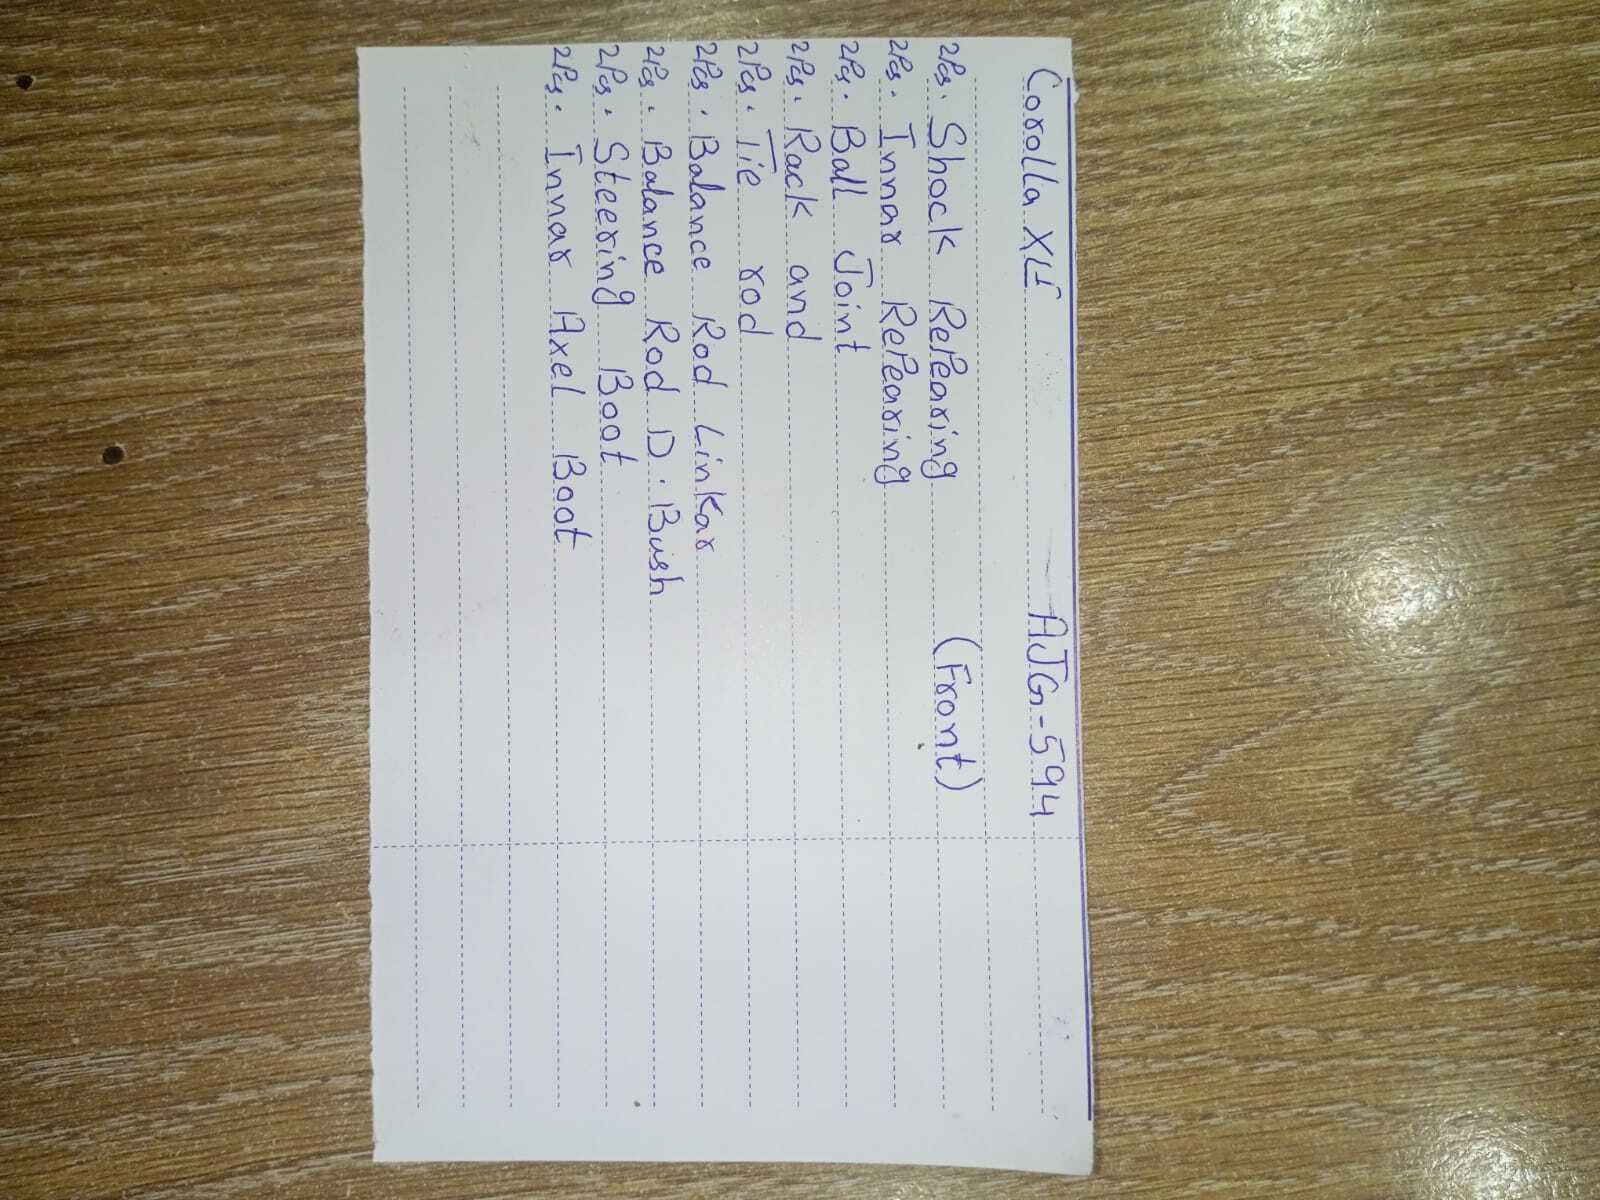 Corolla XLi AJG-594
2Pcs. Shock RePearing (Front)
2Pcs. Innar RePearing
2Pcs. Ball Joint
2Pcs. Rack and
2Pcs. Tie rod
2Pcs. Balance Rod Linkar
2Pcs. Balance Rod D. Bush
2Pcs. Steering Boot
2Pcs. Innar Axel Boot